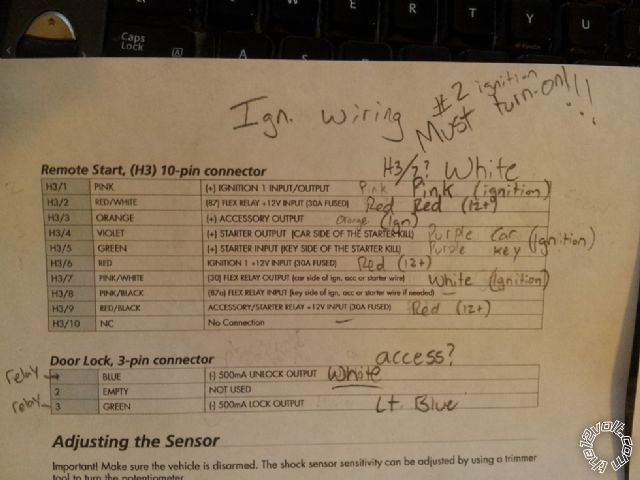 Caps
Lock
A
E
R
T
Y
U
Ign. wiring
#2 ignition
Must turn-on!!!
H3/7? White
Remote Start, (H3) 10-pin connector
H3/1 PINK (+) IGNITION 1 INPUT/OUTPUT Pink Pink (ignition)
H3/2 RED/WHITE (87) FLEX RELAY +12V INPUT (30A FUSED) Red Red (12+)
H3/3 ORANGE (+) ACCESSORY OUTPUT Orange (Ign)
H3/4 VIOLET (+) STARTER OUTPUT (CAR SIDE OF THE STARTER KILL) Purple Car (Ignition)
H3/5 GREEN (+) STARTER INPUT (KEY SIDE OF THE STARTER KILL) Purple key
H3/6 RED IGNITION 1 +12V INPUT (30A FUSED) Red (12+)
H3/7 PINK/WHITE (30) FLEX RELAY OUTPUT (car side of ign, acc or starter wire) White (Ignition)
H3/8 PINK/BLACK (87a) FLEX RELAY INPUT (key side of ign, acc or starter wire if needed) —
H3/9 RED/BLACK ACCESSORY/STARTER RELAY +12V INPUT (30A FUSED) Red (12+)
H3/10 NC No Connection —
Door Lock, 3-pin connector access?
relay BLUE (-) 500mA UNLOCK OUTPUT White
2 EMPTY NOT USED
relay 3 GREEN (-) 500mA LOCK OUTPUT Lt Blue
Adjusting the Sensor
Important! Make sure the vehicle is disarmed. The shock sensor sensitivity can be adjusted by using a trimmer
tool to turn the potentiometer.
the12volt.com